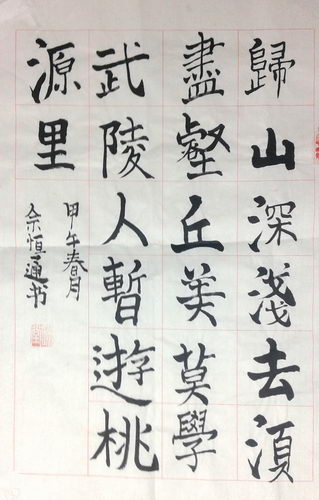 歸山深淺去須
盡壑丘美莫學
武陵人暫遊桃
源里
甲午春月
余恒通书